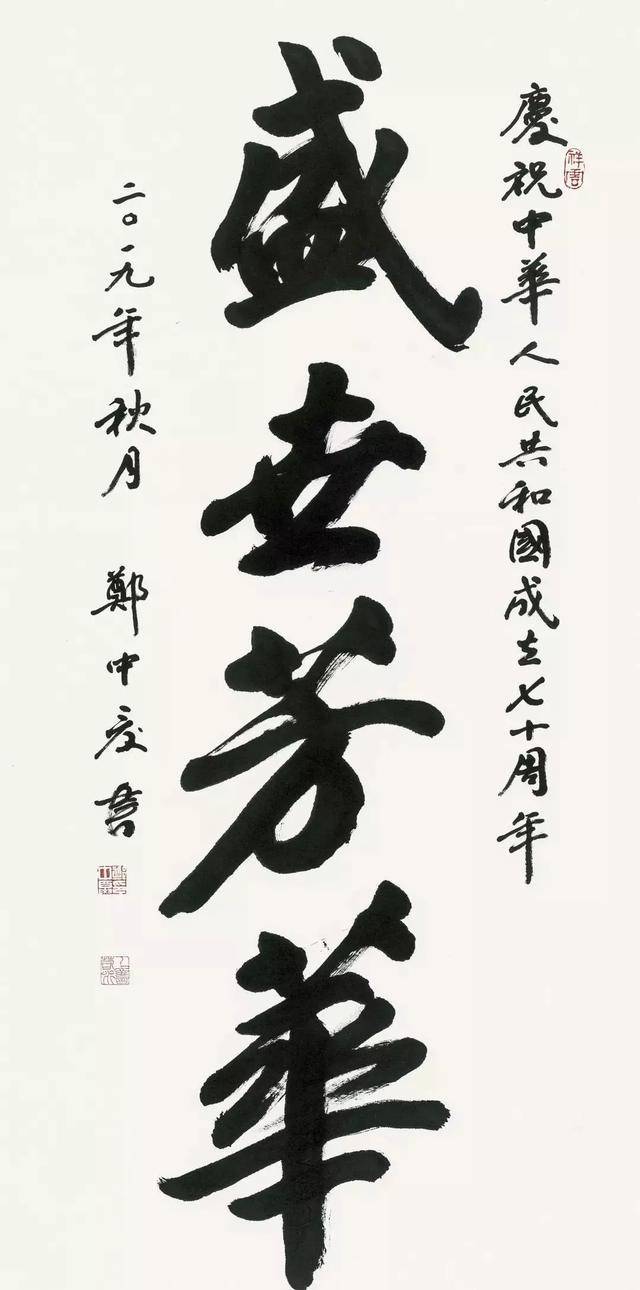 慶祝中華人民共和國成立七十周年
盛世芳華
二〇一九年秋月 鄭中慶書
祥雲